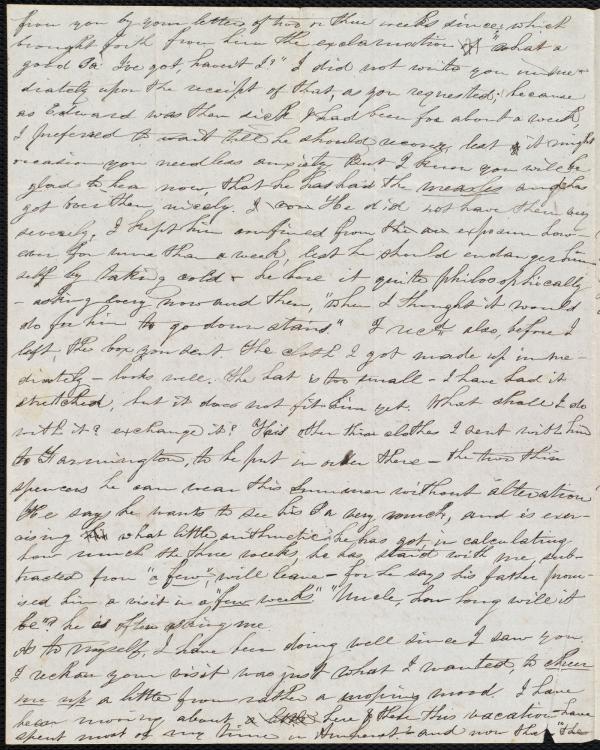 from you by your letters of two or three weeks since, which
brought forth from him the exclamation "what a
good Pa I've got, haven't I?" I did not write you imme-
diately upon the receipt of that, as you requested, because
as Edward was then sick & had been for about a week,
I preferred to wait till he should recover, lest it might
occasion you needless anxiety. But I know you will be
glad to hear now, that he has had the measles and has
got over them nicely. He did not have them very
severely, I kept him confined from the exposure how-
ever for more than a week, lest he should endanger him-
self by taking cold & he bore it quite philosophically
- asking every now and then, "when I thought it would
do for him to go down stairs." I recd also, before I
left the box you sent The cloth I got made up imme-
diately - looks well. The hat is too small - I have had it
stretched, but it does not fit him yet. What shall I do
with it? exchange it? His other thin clothes I sent with him
to Farmington, to be put in order there - the two thin
spencers he can wear this summer without alteration
He says he wants to see his Pa very much, and is exer-
cising what little arithmetic he has got in calculating
how much the three weeks, he has staid with me, sub-
tracted from "a few", will leave - for he says his father prom-
ised him a visit in a "few weeks" "Uncle, how long will it
be"? he is often asking me.
As to myself, I have been doing well since I saw you.
I reckon your visit was just what I wanted, to cheer
me up a little from rather a moping mood. I have
been moving about, here & there this vacation - have
spent most of my time in Amherst - and now that "the